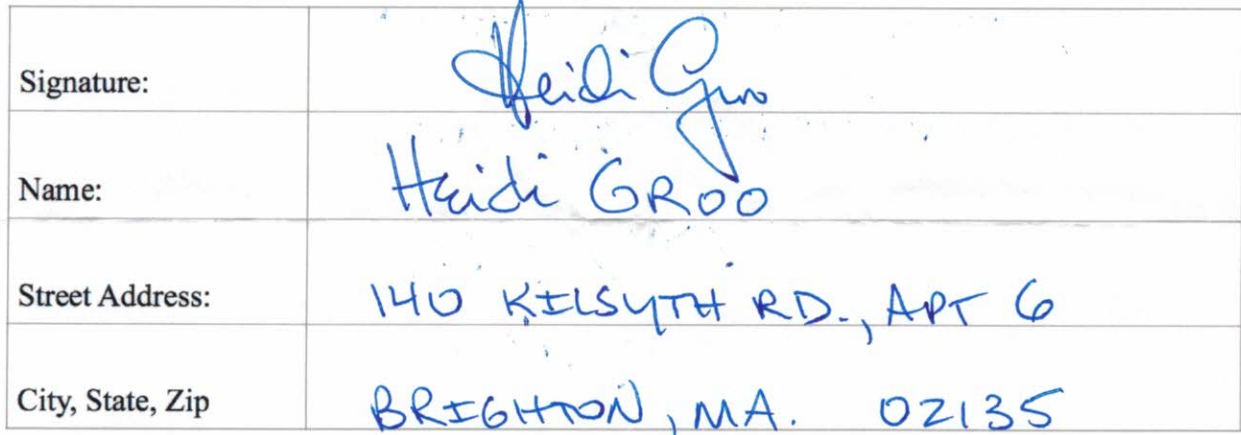 Signature: Heidi Groo
Name: Heidi GROO
Street Address: 140 KILSYTH RD., APT 6
City, State, Zip BRIGHTON, MA. 02135